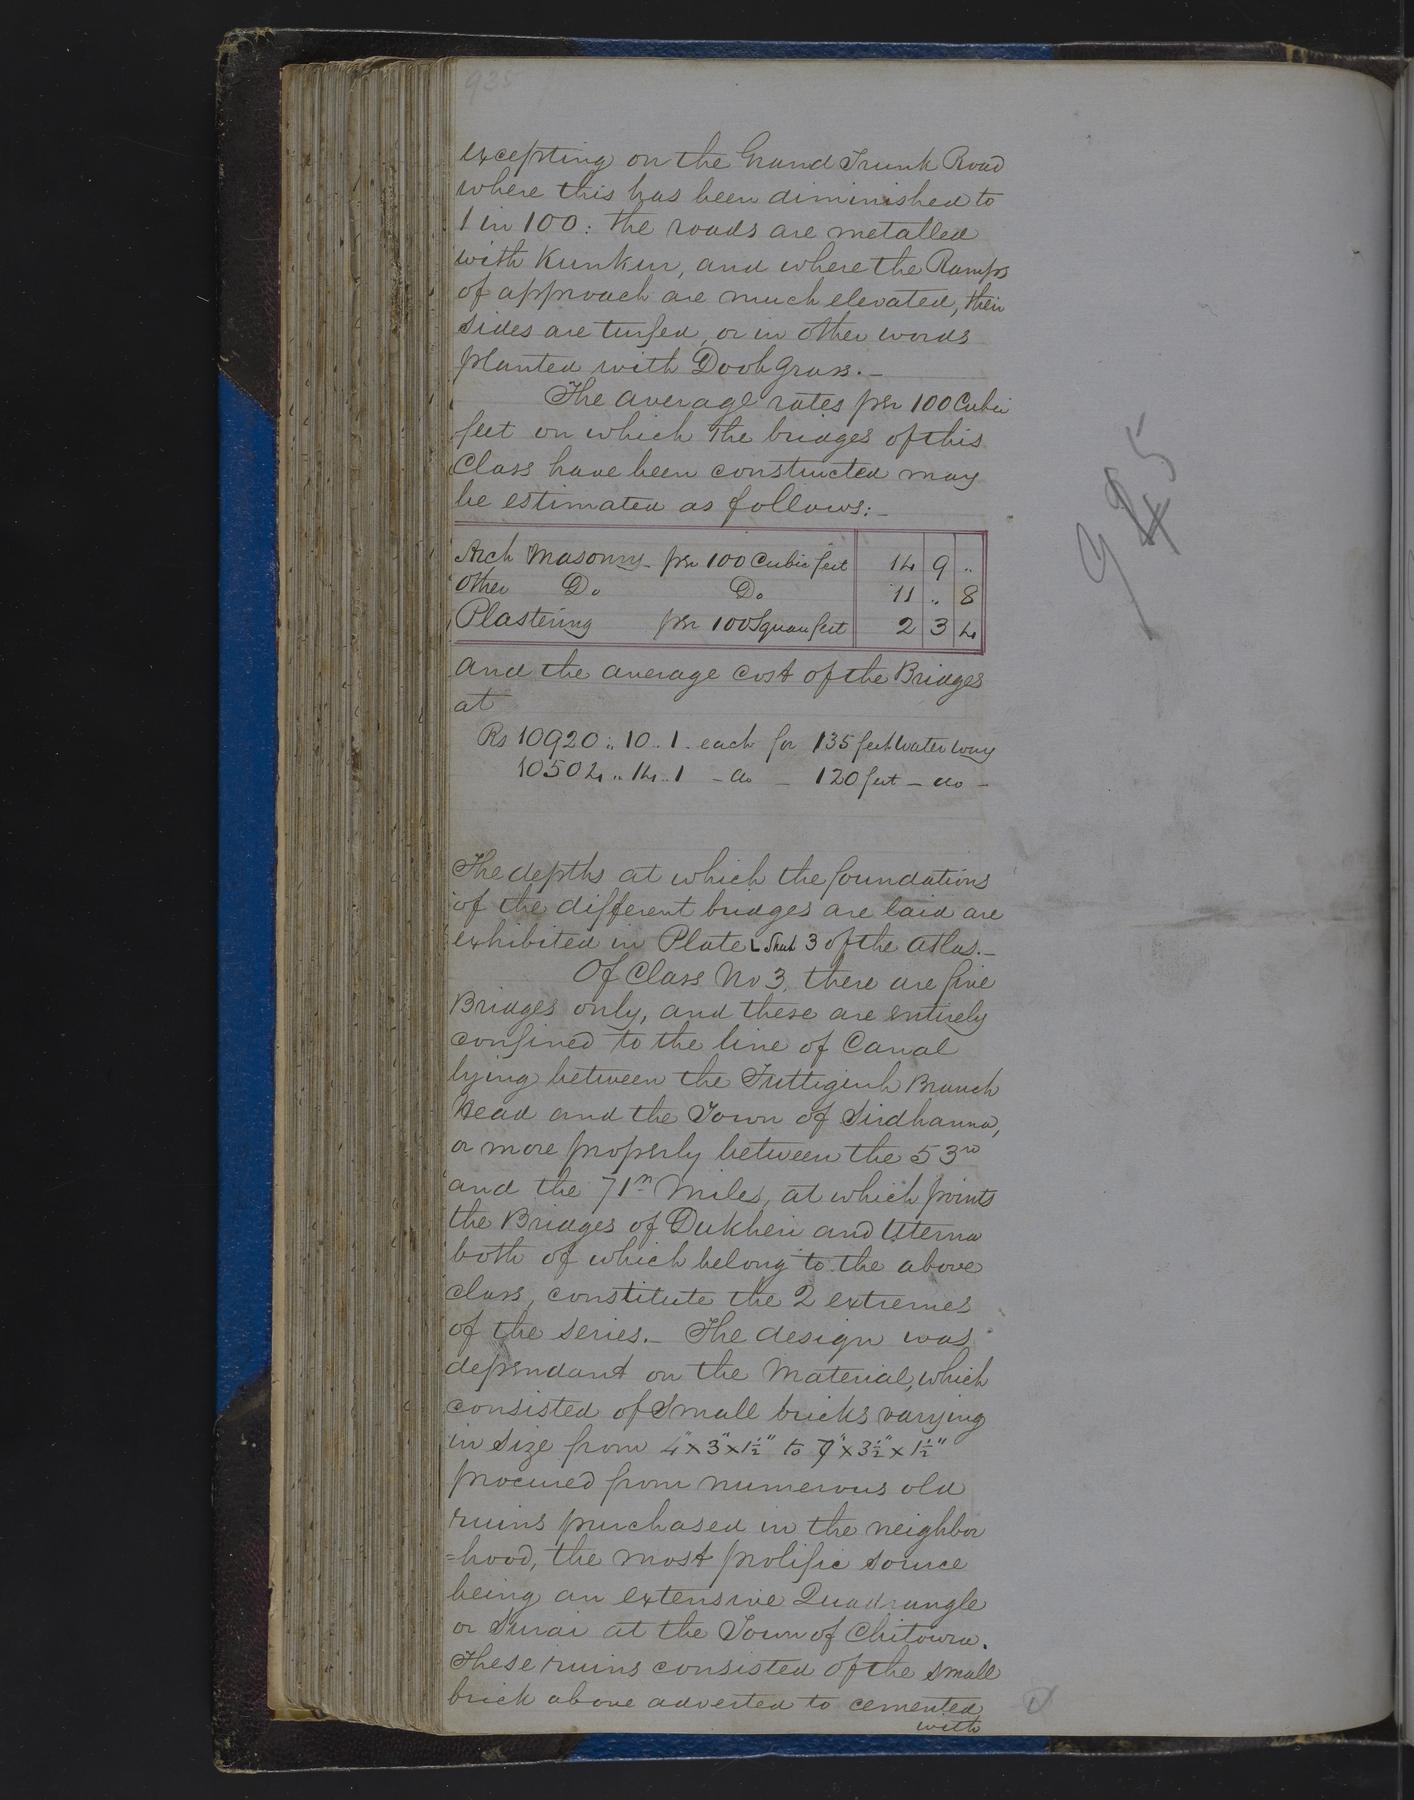 935
excepting on the Grand Trunk Road
where this has been diminished to
1 in 100: the roads are metalled
with Kunkur, and where the Ramps
of approach are much elevated, their
sides are turfed, or in other words
planted with Doob grass.—
The average rates per 100 Cubic
feet on which the bridges of this
Class have been constructed may
be estimated as follows:—
Arch Masonry per 100 Cubic feet 14 9 "
Other Do Do 11 " 8
Plastering per 100 Square feet 2 3 4
and the average cost of the Bridges
at
Rs 10920 " 10 " 1 each for 135 feet water way
10504 " 14 " 1 - do - 120 feet - do -
The depths at which the foundations
of the different bridges are laid are
exhibited in Plate L Sheet 3 of the atlas.—
Of Class No 3, there are five
Bridges only, and these are entirely
confined to the line of Canal
lying between the Futtigurh Branch
head and the Town of Sirdhanna,
or more properly between the 53rd
and the 71st Miles, at which points
the Bridges of Dukheri and Uterna
both of which belong to the above
class, constitute the 2 extremes
of the series.— The design was
dependant on the Material, which
consisted of Small bricks varying
in size from 4"x3"x1½" to 7"x3½"x1½"
procured from numerous old
ruins purchased in the neighbor
=hood, the most prolific source
being an extensive Quadrangle
or Surai at the Town of Chitowra.
These ruins consisted of the small
brick above adverted to cemented
with
945